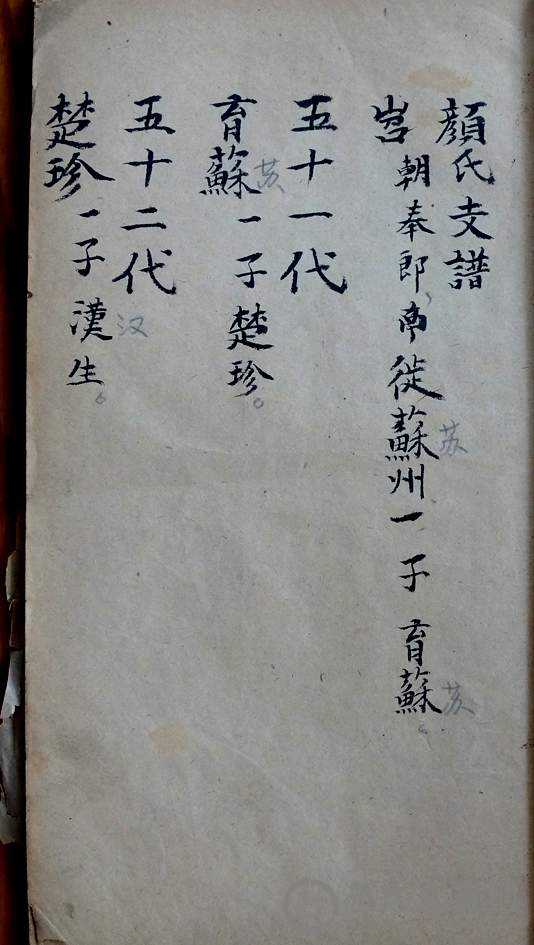 顔氏支譜
朝奉郎、南徙蘇州一子 育蘇。
苏
苏
五十一代
育蘇一子楚珍。
苏
五十二代
汉
楚珍一子漢生。